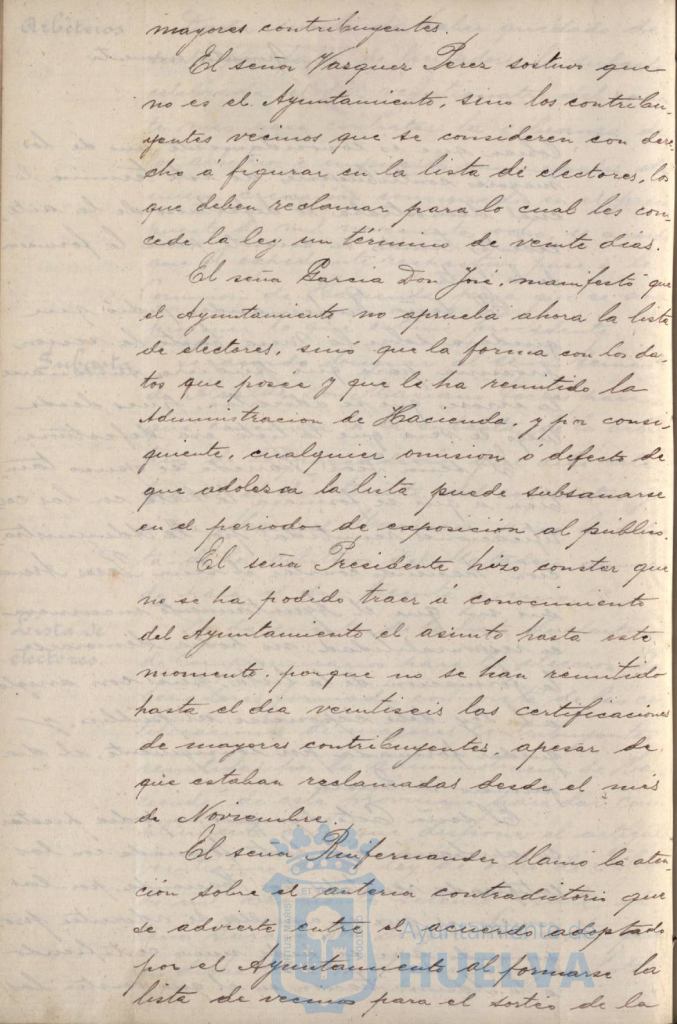 mayores contribuyentes.
El señor Vasquez Perez sostuvo que
no es el Ayuntamiento, sino los contribu-
yentes vecinos que se consideren con dere-
cho á figurar en la lista de electores, los
que deben reclamar para lo cual les con-
cede la ley un término de veinte dias.
El señor Garcia Don José, manifestó que
el Ayuntamiento no aprueba ahora la lista
de electores, sinó que la forma con los da-
tos que posee y que le ha remitido la
Administracion de Hacienda, y por consi-
guiente, cualquier omision ó defecto de
que adolezca la lista puede subsanarse
en el periodo de exposicion al público.
El señor Presidente hizo constar que
no se ha podido traer á conocimiento
del Ayuntamiento el asunto hasta este
momento, porque no se han remitido
hasta el dia veintiseis las certificaciones
de mayores contribuyentes, apesar de
que estaban reclamadas desde el mes
de Noviembre.
El señor Ruifernandez llamó la aten-
ción sobre el contradictorio que
se advierte entre el acuerdo adoptado
por el Ayuntamiento al formarse la
lista de vecinos para el sorteo de la
Ayuntamiento de
HUELVA